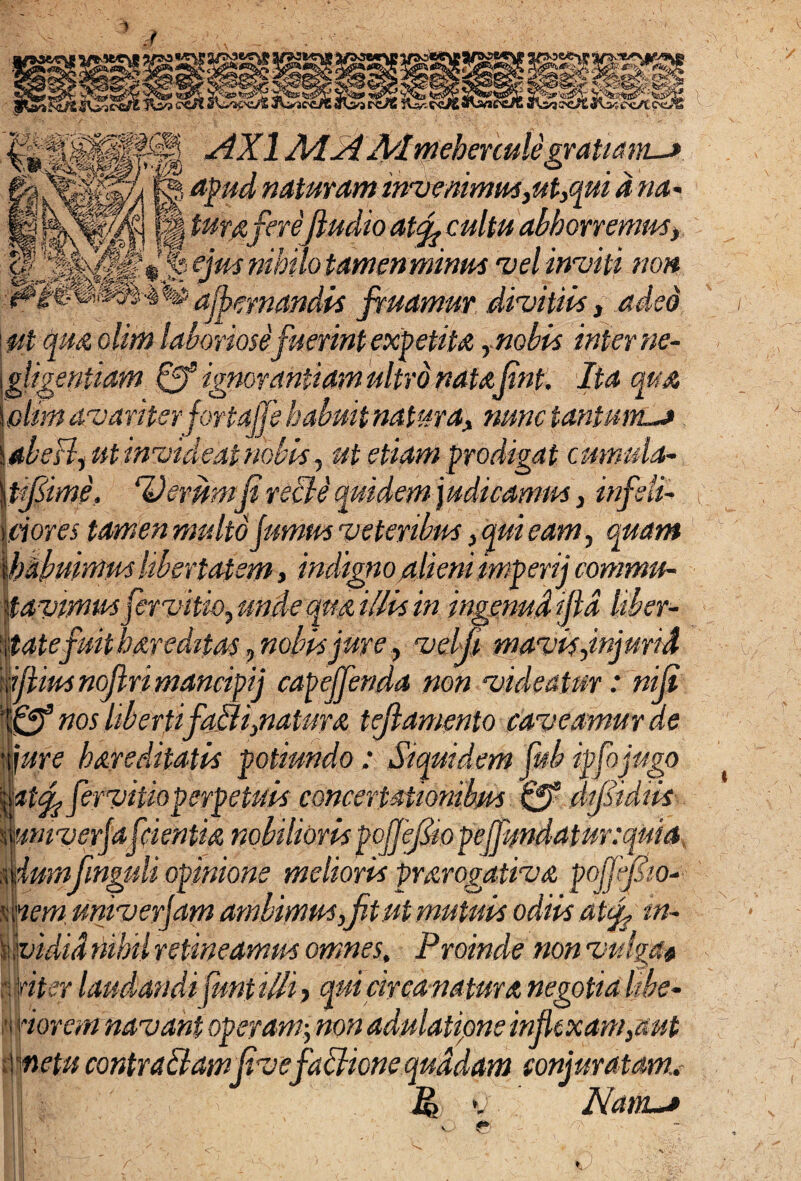 MAXIMAM mehercule gratiam
apud naturam invenimus, ut, qui à na-
turæ ferè ſtudio atq; cultu abhorremus,
ejus nihilo tamen minus vel inviti non
aſpernandis fruamur divitiis, adeò
ut quæ olim laboriosè fuerint expetita, nobis inter ne-
gligentiam & ignorantiam ultrò nata ſint. Ita quæ
olim avariter fortaſſe habuit natura, nunc tantum
abeſt, ut invideat nobis, ut etiam prodigat cumula-
tiſsimè. Verùm ſi rectè quidem judicamus, infeli-
ciores tamen multò ſumus veteribus, qui eam, quam
habuimus libertatem, indigno alieni imperij commu-
tavimus ſervitio, unde quæ illis in ingenuâ iſtâ liber-
tate fuit hæreditas, nobis jure, vel ſi mavis, injuriâ
iſtius noſtri mancipij capeſſenda non videatur: niſi
& nos liberti facti, naturæ teſtamento caveamur de
jure hæreditatis potiundo: Siquidem ſub ipſo jugo
atq; ſervitio perpetuis concertationibus & diſsidiis
univerſa ſcientiæ nobilioris poſſeſsio peſſundatur: quia
dum ſinguli opinione melioris prærogativæ poſſeſsio-
nem univerſam ambimus, fit ut mutuis odiis atq; in-
vidiâ nihil retineamus omnes. Proinde non vulga-
riter laudandi ſunt illi, qui circa naturæ negotia libe-
riorem navant operam; non adulatione inflexam, aut
metu contractam ſive factione quâdam conjuratam.
Nam